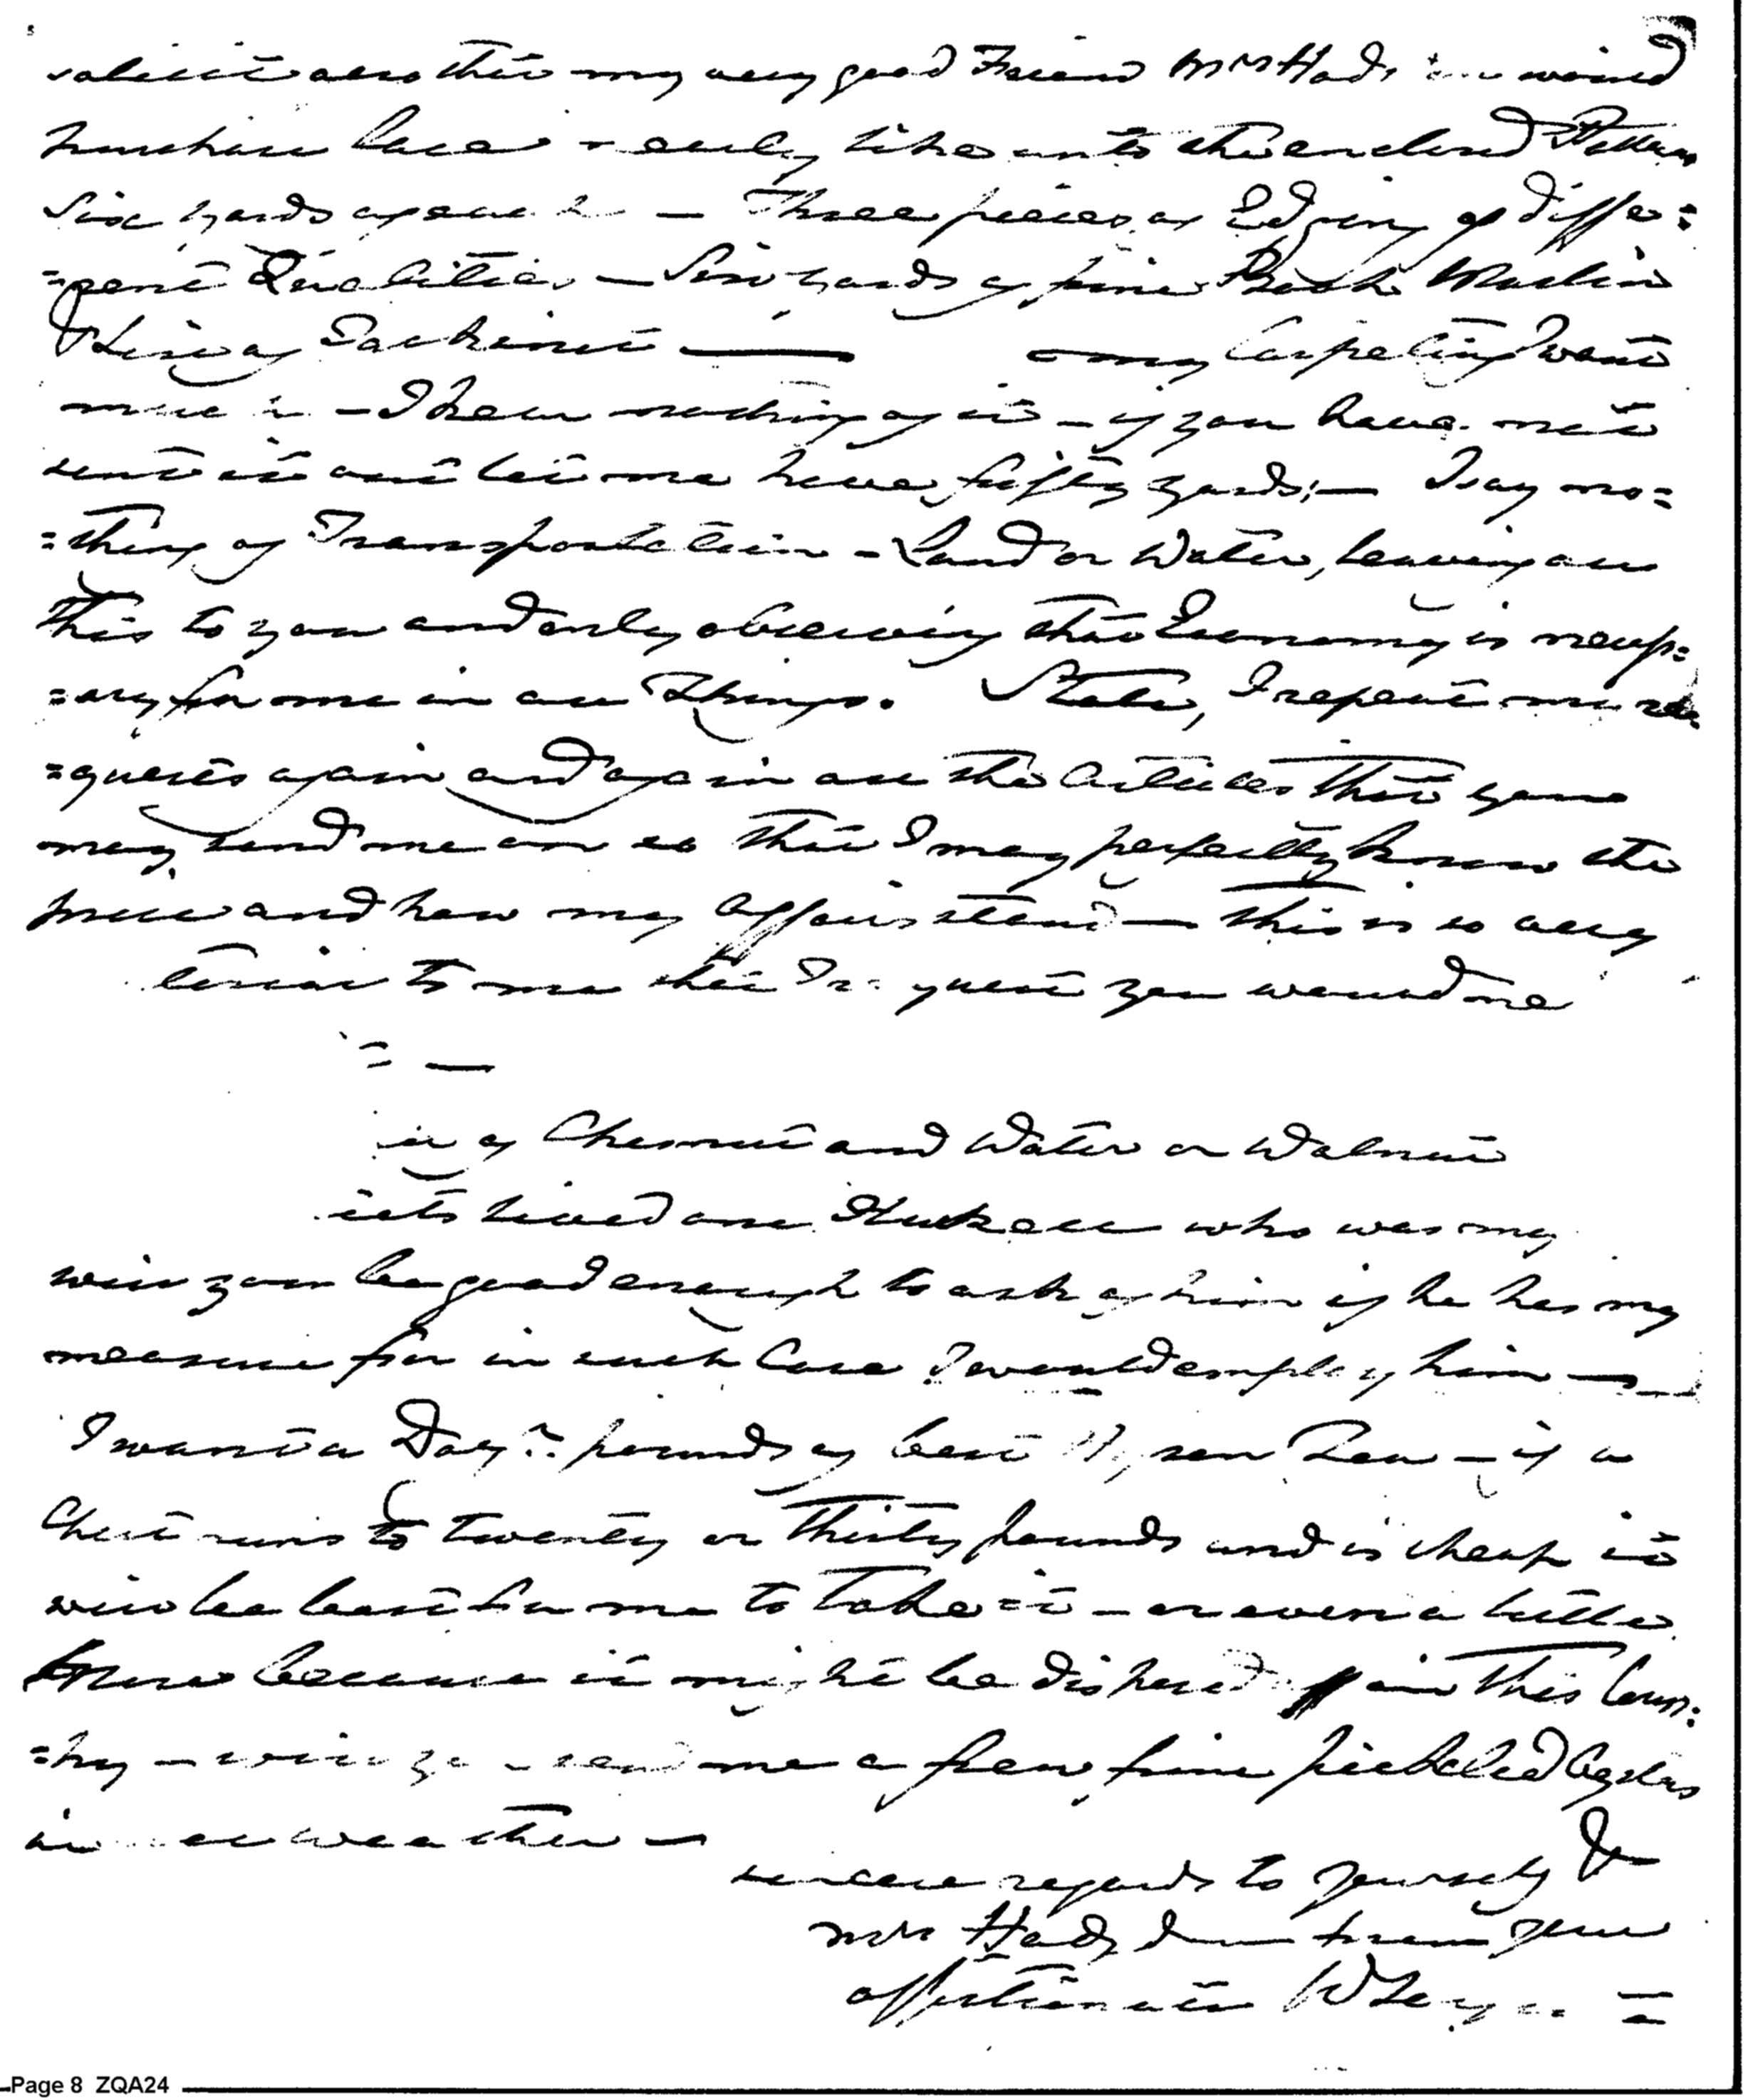 solicit also that my very good Friend Mrs Hodg would
purchase lace nearly like unto the enclosed Pattern
Six yards of each — Three pieces of Edging of diffe=
=rent Qualities — Six yards of fine Book Muslin
& Six of Jackonet — my Carpeting I want
much — I hear nothing of it — if you have not
sent it out let me have fifty yards; — I say no=
=thing of Transportation — Land or Water, leaving all
this to you and only observing that Economy is necess=
=ary for me in all Things. State, I repeat my re=
=quests again and again all the Articles that you
may send me or so that I may perfectly know the
price and how my Affairs stand — this is so very
terial to me that I request you would
=
of Chesnut and Water or Walnut
lived one who was my
will you be good enough to ask of him if he has my
measure for in such Case I would employ him —
I want a Doz. pounds of best Hyson Tea — if a
Chest runs to twenty or thirty pounds and is cheap it
will be best for me to take it — or even a little
more because it might be disposed of in this Coun=
=try — will you send me a few fine pickeled Oysters
in weather —
sincere regards to yourself &
Mrs Hodg I am your
affectionate
Page 8 ZQA24